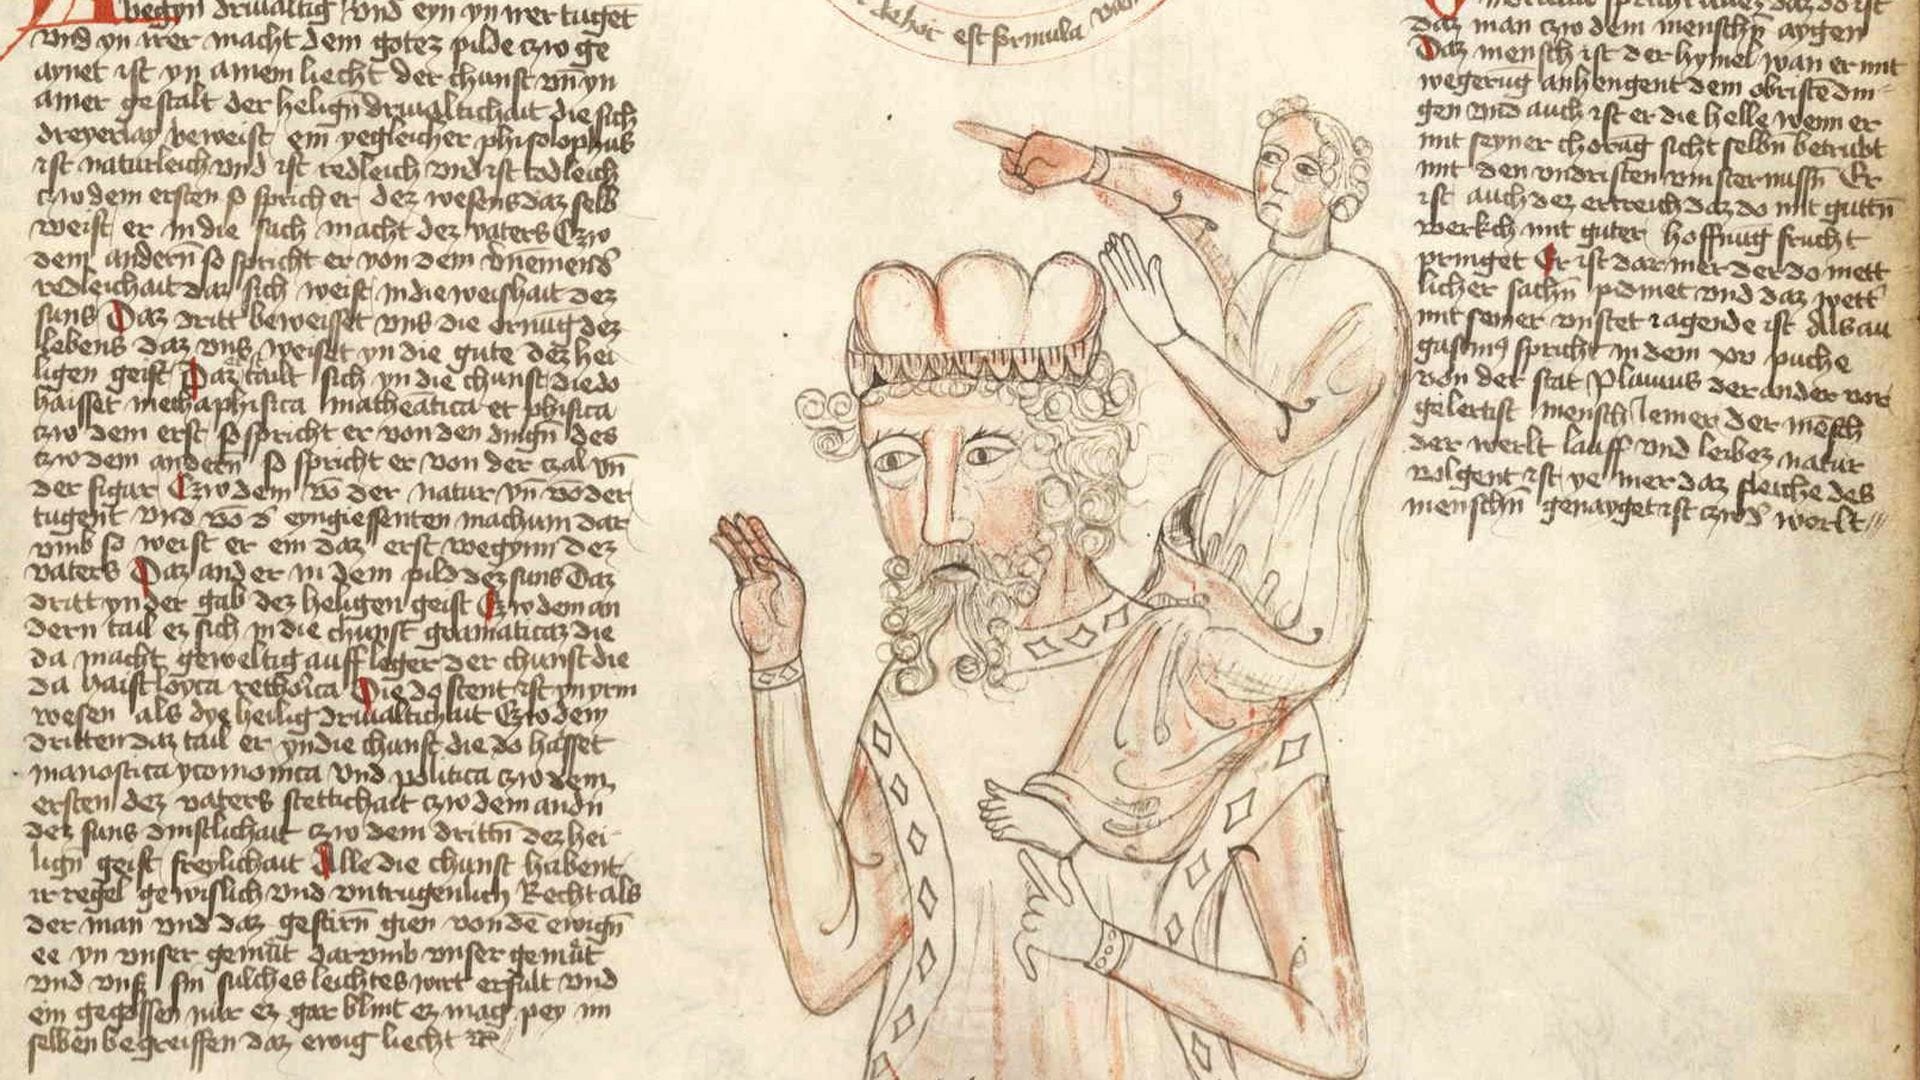 begyn drivaltig vnd eyn yn irer tuget
vnd yn irer macht dem gotez pilde czw ge
aynet ist yn ainem liecht der chunst vnd yn
ainer gestalt der heilign drivaltichait die sich
dreyerlay beweist ein yegleicher philosophus
ist naturleich vnd ist redleich vnd ist todleich
czw dem ersten so sprichet er dez wesens daz selb
weist er in die sach macht dez vaters Czw
dem andern so spricht er von dem
redleichait daz sich weist in die weishait dez
suns Daz dritt beweisset vns die ornung dez
lebens daz vns weiset yn die gute dez hei
ligen geist Daz tailt sich yn die chunst die do
haisset methaphisica mathematica et phisica
czw dem erst so spricht er von den dingn des
czw dem andern so spricht er von der czal vn
der figur Czw dem vo der natur vn vo der
tugent vnd vo d eyngiessenten machum dar
vmb so weist er ein daz erst wegynn dez
vaters Daz ander in dem pild dez suns Daz
dritt yn der gab dez heligen geist Czw dem an
dern tail ez sich in die chunst gramaticaz die
da macht geweltig auffleger der chunst die
da haist loyca rethorica Die do stent ist yn yrm
wesen als dye heilig drivaltichait Czw dem
dritten daz tail er yn die chunst die do hasset
manostica yconomica vnd politica czw dem
ersten dez vaters stettichait czw dem andn
dez suns dinstlichait czw dem drittn dez hei
lign geist freylichait Alle die chunst habent
ir regel gewislich vnd vntrugenlich Recht als
der man vnd daz gestirn gien von de ewign
ee yn vnser gemut darvmb vnser gemut
vnd vns sin sulches leichtes wirt erfult vnd
ein gegossen nur ez gar blint ez mag pey im
selben begreiffen daz ewig liecht etc
de hoc est formula
daz man czw dem menschn aygen
Daz mensch ist der hymel wan er mit
wegerug anhengent dem obriste din
gen vnd auch ist er die helle wenn er
mit seyner chorug sicht selbn betrubt
mit den vndristen vinsternussn Er
ist auch dez ertreich daz do mit guttn
werkch mit guter hoffnug frucht
pringet Er ist dar mer der do mett
licher sachn pidmet vnd daz wett
mit seiner vnstet ragende ist Als au
gustinus spricht in dem xv puche
von der stat Plauius der ander vor
gelert ist mensch iemer der mesch
der werlt lauff vnd leibez natur
volgent ist ye mer daz fleische des
menschn genayget ist czw d werlt